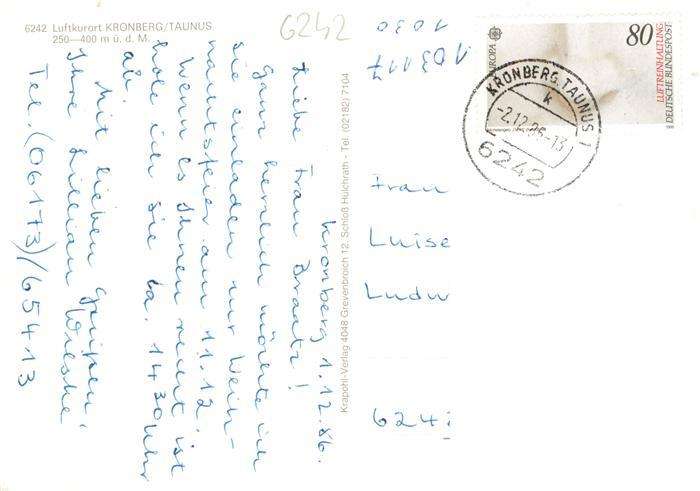 6242 Luftkurort KRONBERG/TAUNUS
250—400 m ü. d. M.
6242
Kronberg 1.12.86.
Liebe Frau Braatz!
Ganz herzlich möchte ich
Sie einladen zur Weih-
nachtsfeier am 11.12.
Wenn es Ihnen recht ist
hole ich Sie ca. 14 30 Uhr
ab.
Mit lieben Grüßen
Ihre Lillian
Tel. (06173)/65413
Krapohl-Verlag 4048 Grevenbroich 12, Schloß Hülchrath - Tel. (02182) 7104
103117
1030
EUROPA
80
LUFTREINHALTUNG
DEUTSCHE BUNDESPOST
KRONBERG, TAUNUS 1
k
-2.12.86-13
6242
Frau
Luise
Ludw
624